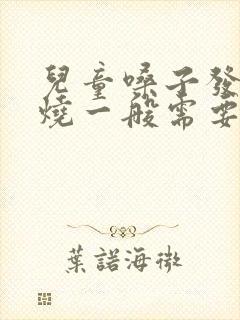 兒童嗓子發
燒一般需要
葉諾海微